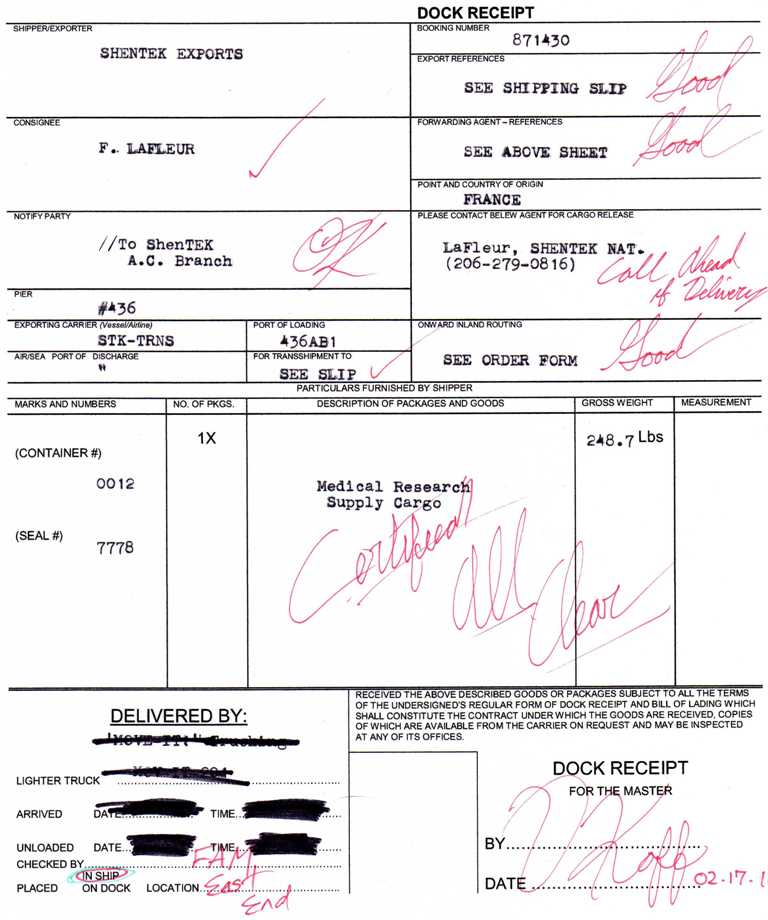 DOCK RECEIPT
SHIPPER/EXPORTER
SHENTEK EXPORTS
BOOKING NUMBER
871430
EXPORT REFERENCES
SEE SHIPPING SLIP
Good
CONSIGNEE
F. LAFLEUR
FORWARDING AGENT – REFERENCES
SEE ABOVE SHEET
Good
POINT AND COUNTRY OF ORIGIN
FRANCE
NOTIFY PARTY
//To ShenTEK
A.C. Branch
OK
PLEASE CONTACT BELEW AGENT FOR CARGO RELEASE
LaFleur, SHENTEK NAT.
(206-279-0816)
Call Ahead
of Delivery
PIER
#436
EXPORTING CARRIER (Vessel/Airline)
STK-TRNS
PORT OF LOADING
436AB1
ONWARD INLAND ROUTING
SEE ORDER FORM
Good
AIR/SEA PORT OF DISCHARGE
"
FOR TRANSSHIPMENT TO
SEE SLIP
PARTICULARS FURNISHED BY SHIPPER
MARKS AND NUMBERS
NO. OF PKGS.
DESCRIPTION OF PACKAGES AND GOODS
GROSS WEIGHT
MEASUREMENT
(CONTAINER #)
0012
(SEAL #)
7778
1X
Medical Research
Supply Cargo
Certified
All
Clear
248.7 Lbs
DELIVERED BY:
LIGHTER TRUCK
ARRIVED DATE TIME
UNLOADED DATE TIME
CHECKED BY
IN SHIP
PLACED ON DOCK LOCATION
East
End
RECEIVED THE ABOVE DESCRIBED GOODS OR PACKAGES SUBJECT TO ALL THE TERMS
OF THE UNDERSIGNED'S REGULAR FORM OF DOCK RECEIPT AND BILL OF LADING WHICH
SHALL CONSTITUTE THE CONTRACT UNDER WHICH THE GOODS ARE RECEIVED, COPIES
OF WHICH ARE AVAILABLE FROM THE CARRIER ON REQUEST AND MAY BE INSPECTED
AT ANY OF ITS OFFICES.
DOCK RECEIPT
FOR THE MASTER
BY
V Koff
DATE
02.17.1